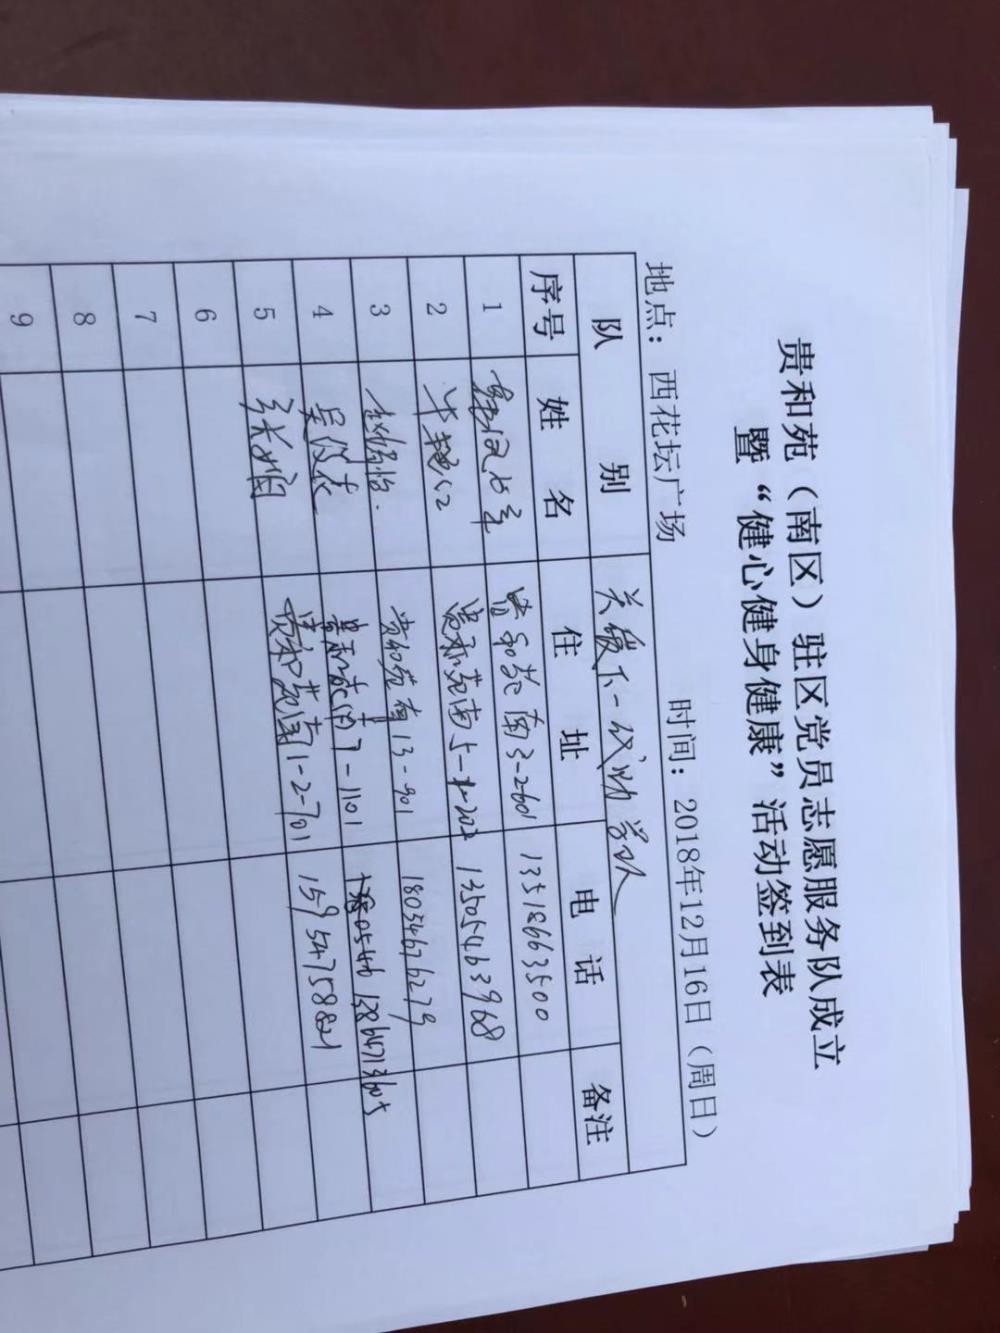 贵和苑（南区）驻区党员志愿服务队成立
暨“健心健身健康”活动签到表
地点：西花坛广场 时间：2018年12月16日（周日）
队别 关爱下一代助学队
序号 姓名 住址 电话 备注
1 贵和苑南3-2-601 13518663500
2 贵和苑南5-1-202 13505463968
3 贵和苑南13-901 18034676279
4 贵和苑南7-1101 13864713605
5 张娟 贵和苑南1-2-701 15954758821
6
7
8
9